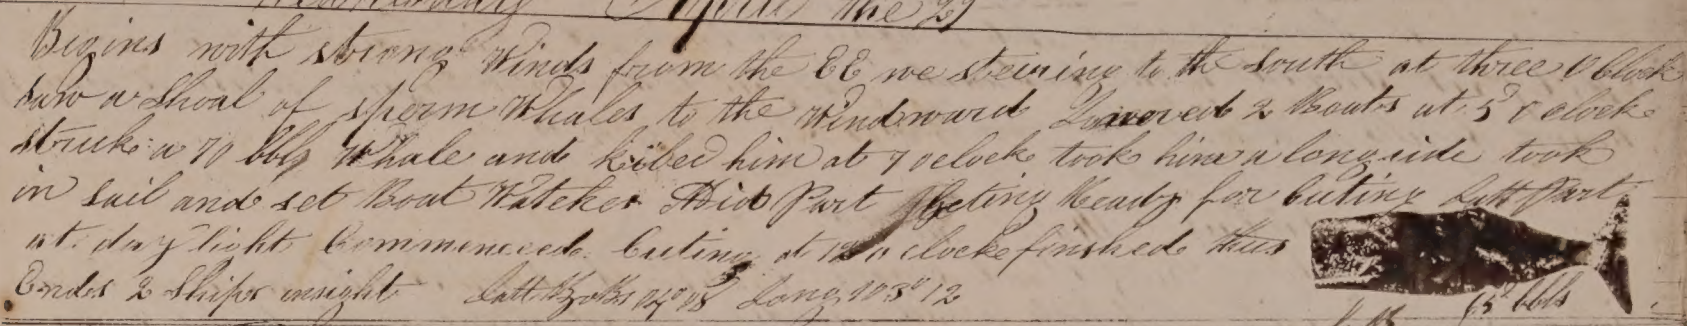 April the 29
Begins with strong Winds from the EE we stearing to the South at three O Clock
Saw a Shoal of Sperm Whales to the Windward Lowered 2 Boats at 5 O clock
struck a 70 bbls Whale and kiled him at 7 oclock took him a longside took
in sail and set Boat Watches Mid Part Geting Ready for Cuting Latt Part
at daylight Commenced Cuting at 12 o clocke finshed thus
Ends 2 Ships insight Latt Long 103° 12
65 bbls